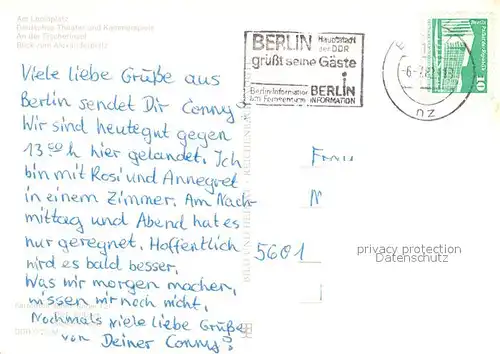 Am Leninplatz
Deutsches Theater und Kammerspiele
An der Fischerinsel
Blick zum Alexanderplatz
Viele liebe Grüße aus
Berlin sendet Dir Conny!
Wir sind heute gut gegen
13.00 h hier gelandet. Ich
bin mit Rosi und Annegret
in einem Zimmer. Am Nach-
mittag und Abend hat es
nur geregnet. Hoffentlich
wird es bald besser.
Was wir morgen machen,
wissen wir noch nicht.
Nochmals viele liebe Grüße
von Deiner Conny!
BERLIN Hauptstadt
der DDR
grüßt seine Gäste
Berlin-Information
am Fernsehturm
i
BERLIN
INFORMATION
10
Frau
N
5601
privacy protection
Datenschutz